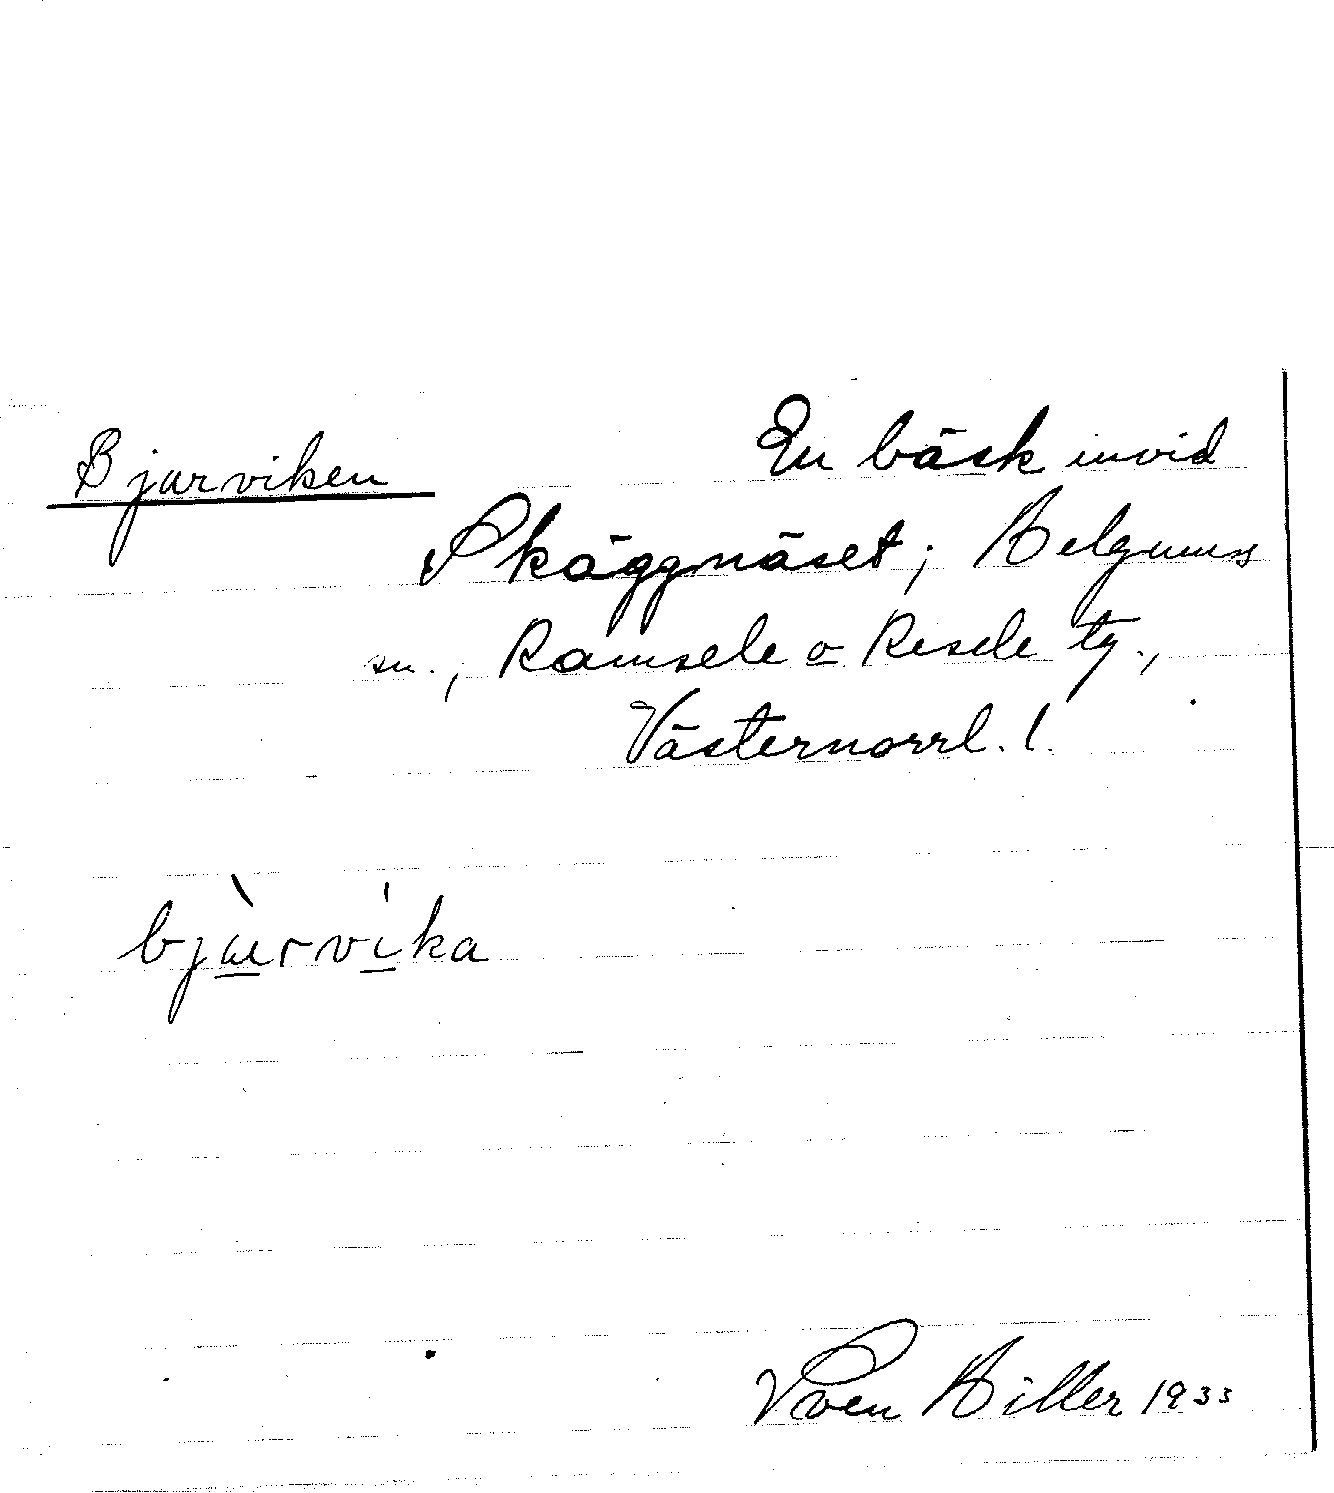 Bjarviken
En bäck invid
Skäggnäset; Helgums
sn., Ramsele o Resele tg.,
Västernorrl. l.
bjàrvíka
Sven Hiller 1933